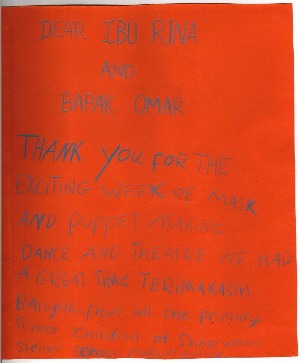 DEAR IBU RINA
AND
BAPAK OMAR
THANK YOU FOR THE
EXCITING WEEK OF MASK
AND PUPPET MAKING
DANCE AND THEATRE WE HAD
A GREAT TIME TERIMAKASIH
BANYAK from all the primary
School children at